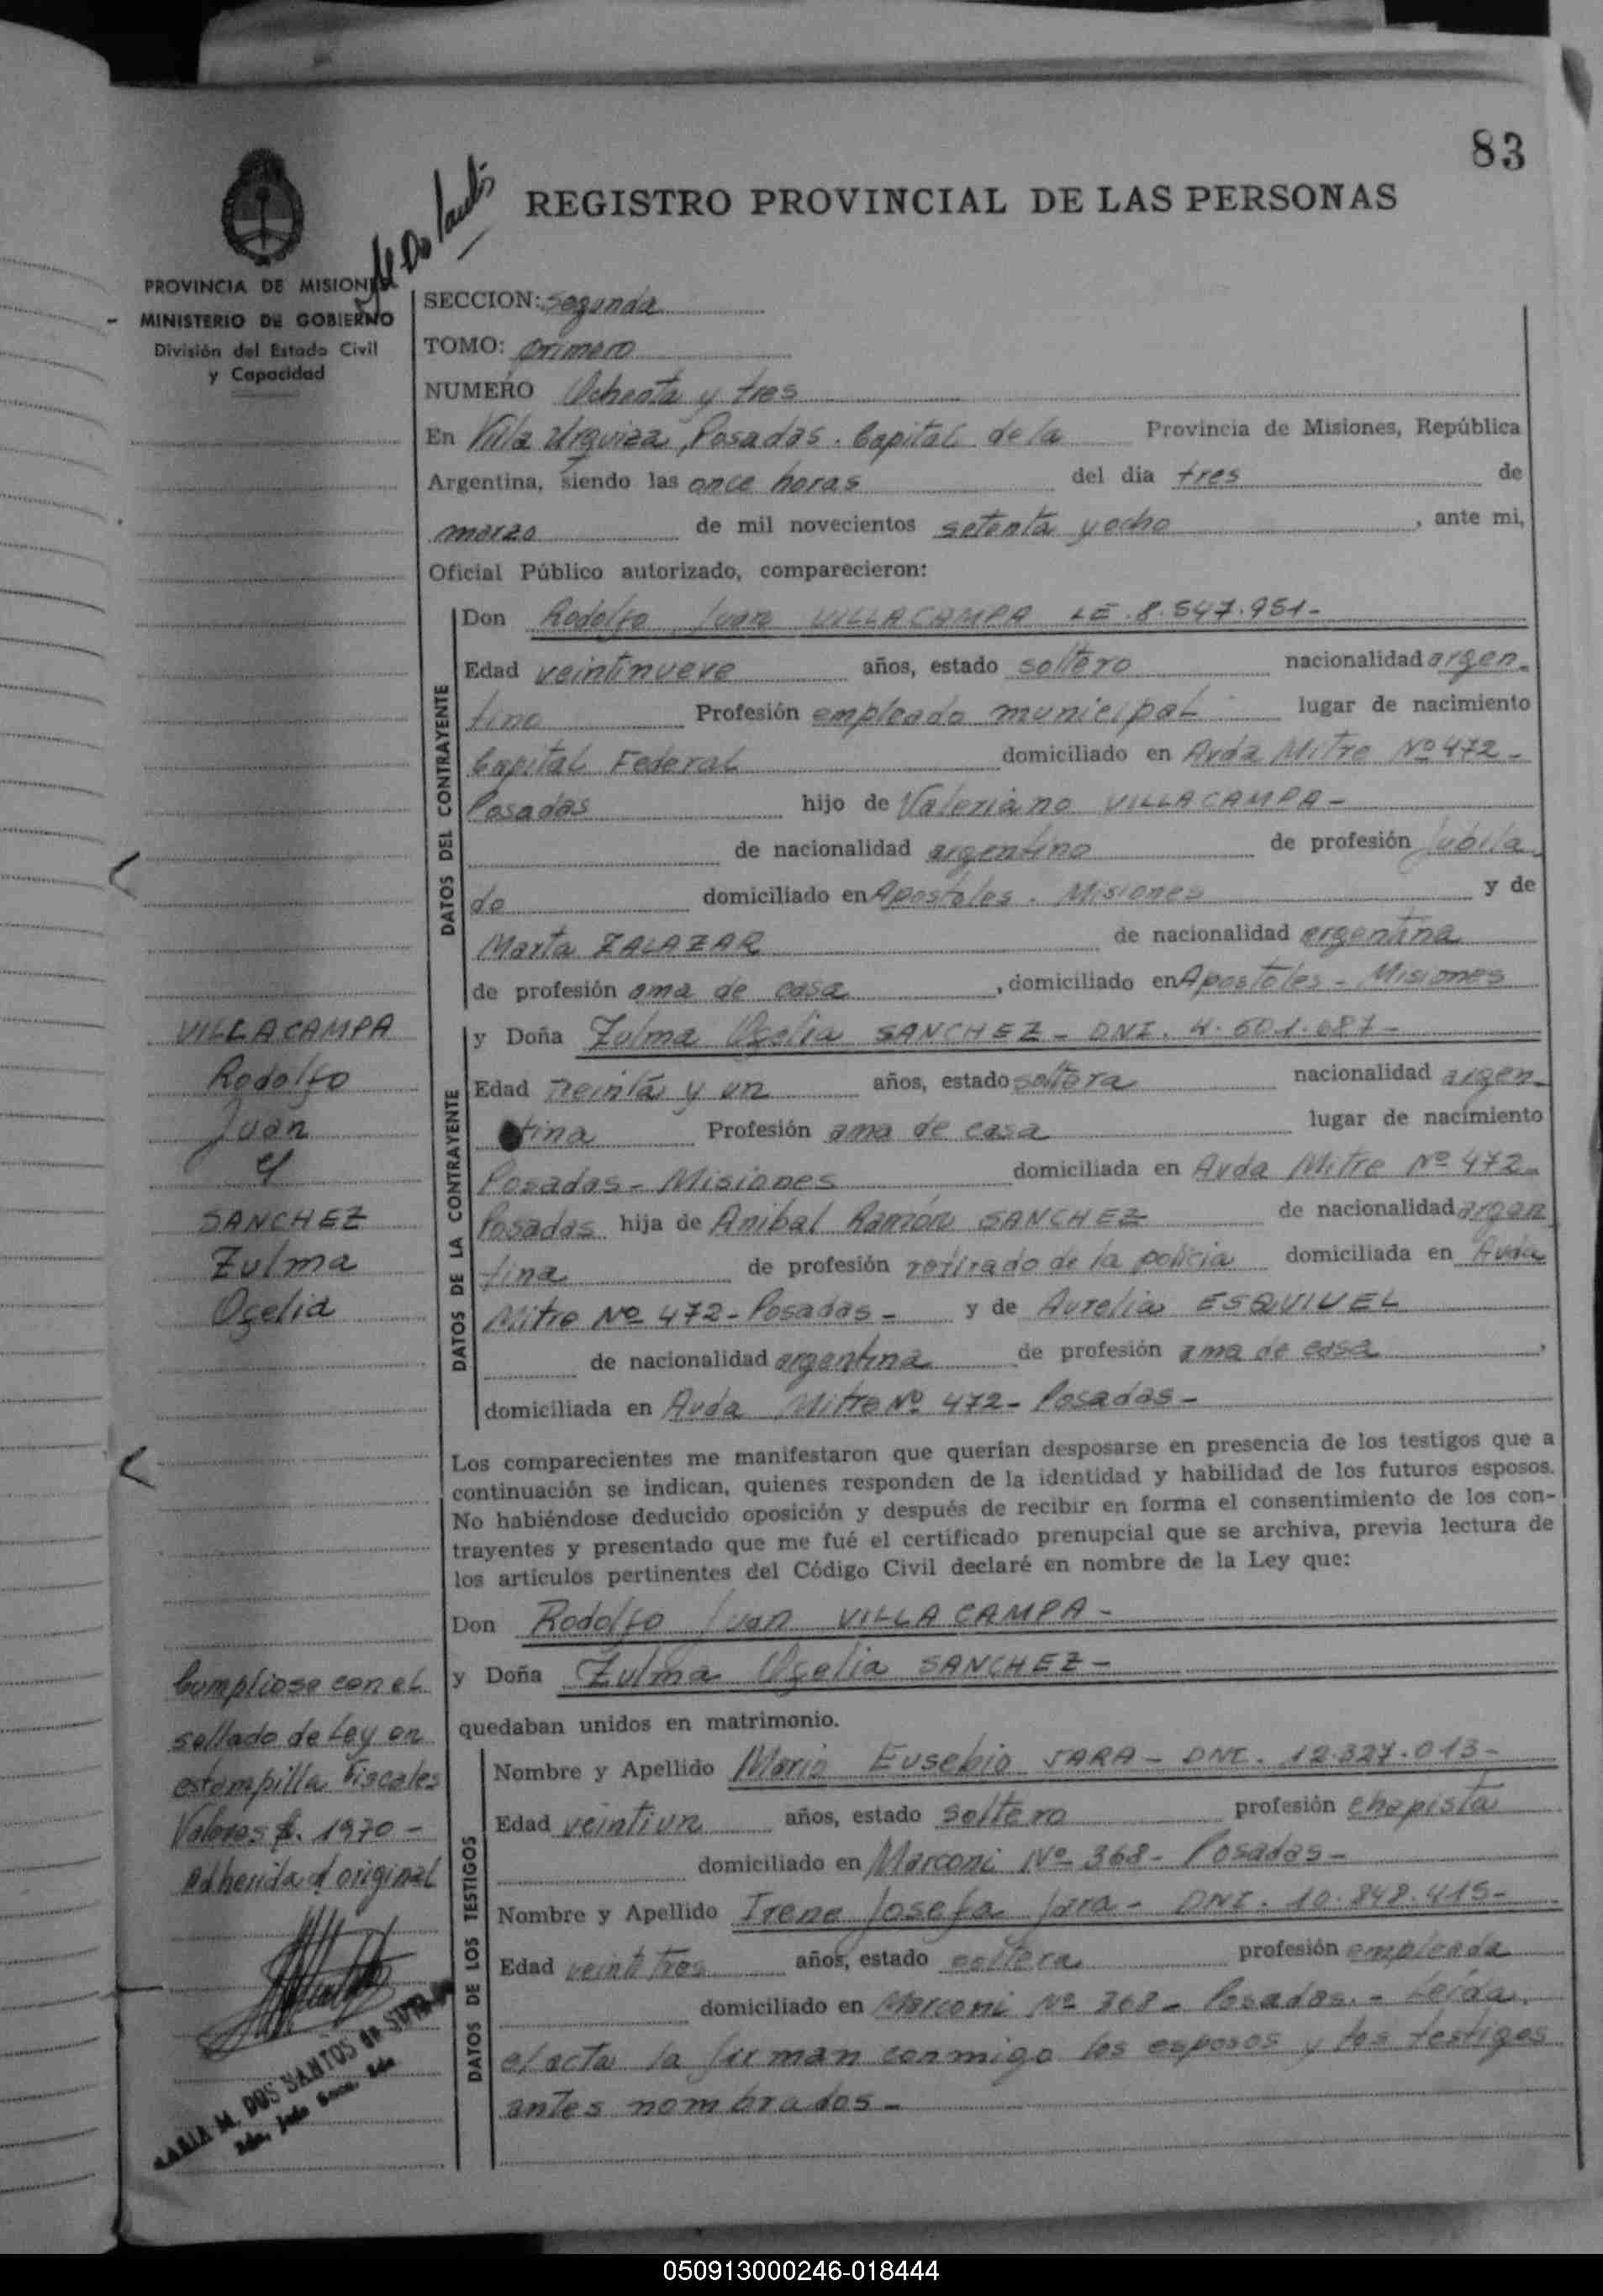 83
REGISTRO PROVINCIAL DE LAS PERSONAS
PROVINCIA DE MISIONES
MINISTERIO DE GOBIERNO
División del Estado Civil
y Capacidad
SECCION: Segunda
TOMO: primero
NUMERO Ochenta y tres
En Villa Urquiza, Posadas. Capital de la Provincia de Misiones, República
Argentina, siendo las once horas del día tres de
marzo de mil novecientos setenta y ocho, ante mi,
Oficial Público autorizado, comparecieron:
DATOS DEL CONTRAYENTE
Don Rodolfo Juan VILLACAMPA LE. 8.547.951-
Edad veintinueve años, estado soltero nacionalidad argen-
tino Profesión empleado municipal lugar de nacimiento
Capital Federal domiciliado en Avda Mitre Nº 472-
Posadas hijo de Valeriano VILLACAMPA-
de nacionalidad argentino de profesión Jubila
do domiciliado en Apostoles. Misiones y de
Marta ZALAZAR de nacionalidad argentina
de profesión ama de casa, domiciliado en Apostoles - Misiones
DATOS DE LA CONTRAYENTE
y Doña Zulma Ogelia SANCHEZ - DNI. 4.501.687-
Edad treinta y un años, estado soltera nacionalidad argen-
tina Profesión ama de casa lugar de nacimiento
Posadas - Misiones domiciliada en Avda Mitre Nº 472-
Posadas hija de Anibal Ramón SANCHEZ de nacionalidad argen
tina de profesión retirado de la policia domiciliada en Avda
Mitre Nº 472- Posadas- y de Aurelia ESQUIVEL
de nacionalidad argentina de profesión ama de casa,
domiciliada en Avda Mitre Nº 472- Posadas-
VILLACAMPA
Rodolfo
Juan
y
SANCHEZ
Zulma
Ogelia
Los comparecientes me manifestaron que querían desposarse en presencia de los testigos que a
continuación se indican, quienes responden de la identidad y habilidad de los futuros esposos.
No habiéndose deducido oposición y después de recibir en forma el consentimiento de los con-
trayentes y presentado que me fué el certificado prenupcial que se archiva, previa lectura de
los artículos pertinentes del Código Civil declaré en nombre de la Ley que:
Don Rodolfo Juan VILLACAMPA-
y Doña Zulma Ogelia SANCHEZ-
quedaban unidos en matrimonio.
DATOS DE LOS TESTIGOS
Nombre y Apellido Mario Eusebio JARA - DNI. 12.327.013-
Edad veintiun años, estado soltero profesión chapista
domiciliado en Marconi Nº 368- Posadas-
Nombre y Apellido Irene Josefa Jara - DNI. 10.848.415-
Edad veintitres años, estado soltera profesión empleada
domiciliado en Marconi Nº 368- Posadas.- Leída
el acta la firman conmigo los esposos y los testigos
antes nombrados-
Cumpliose con el
sellado de Ley en
estampilla Fiscales
Valores $. 1970-
Adherida al original
MARIA M. DOS SANTOS de
050913000246-018444